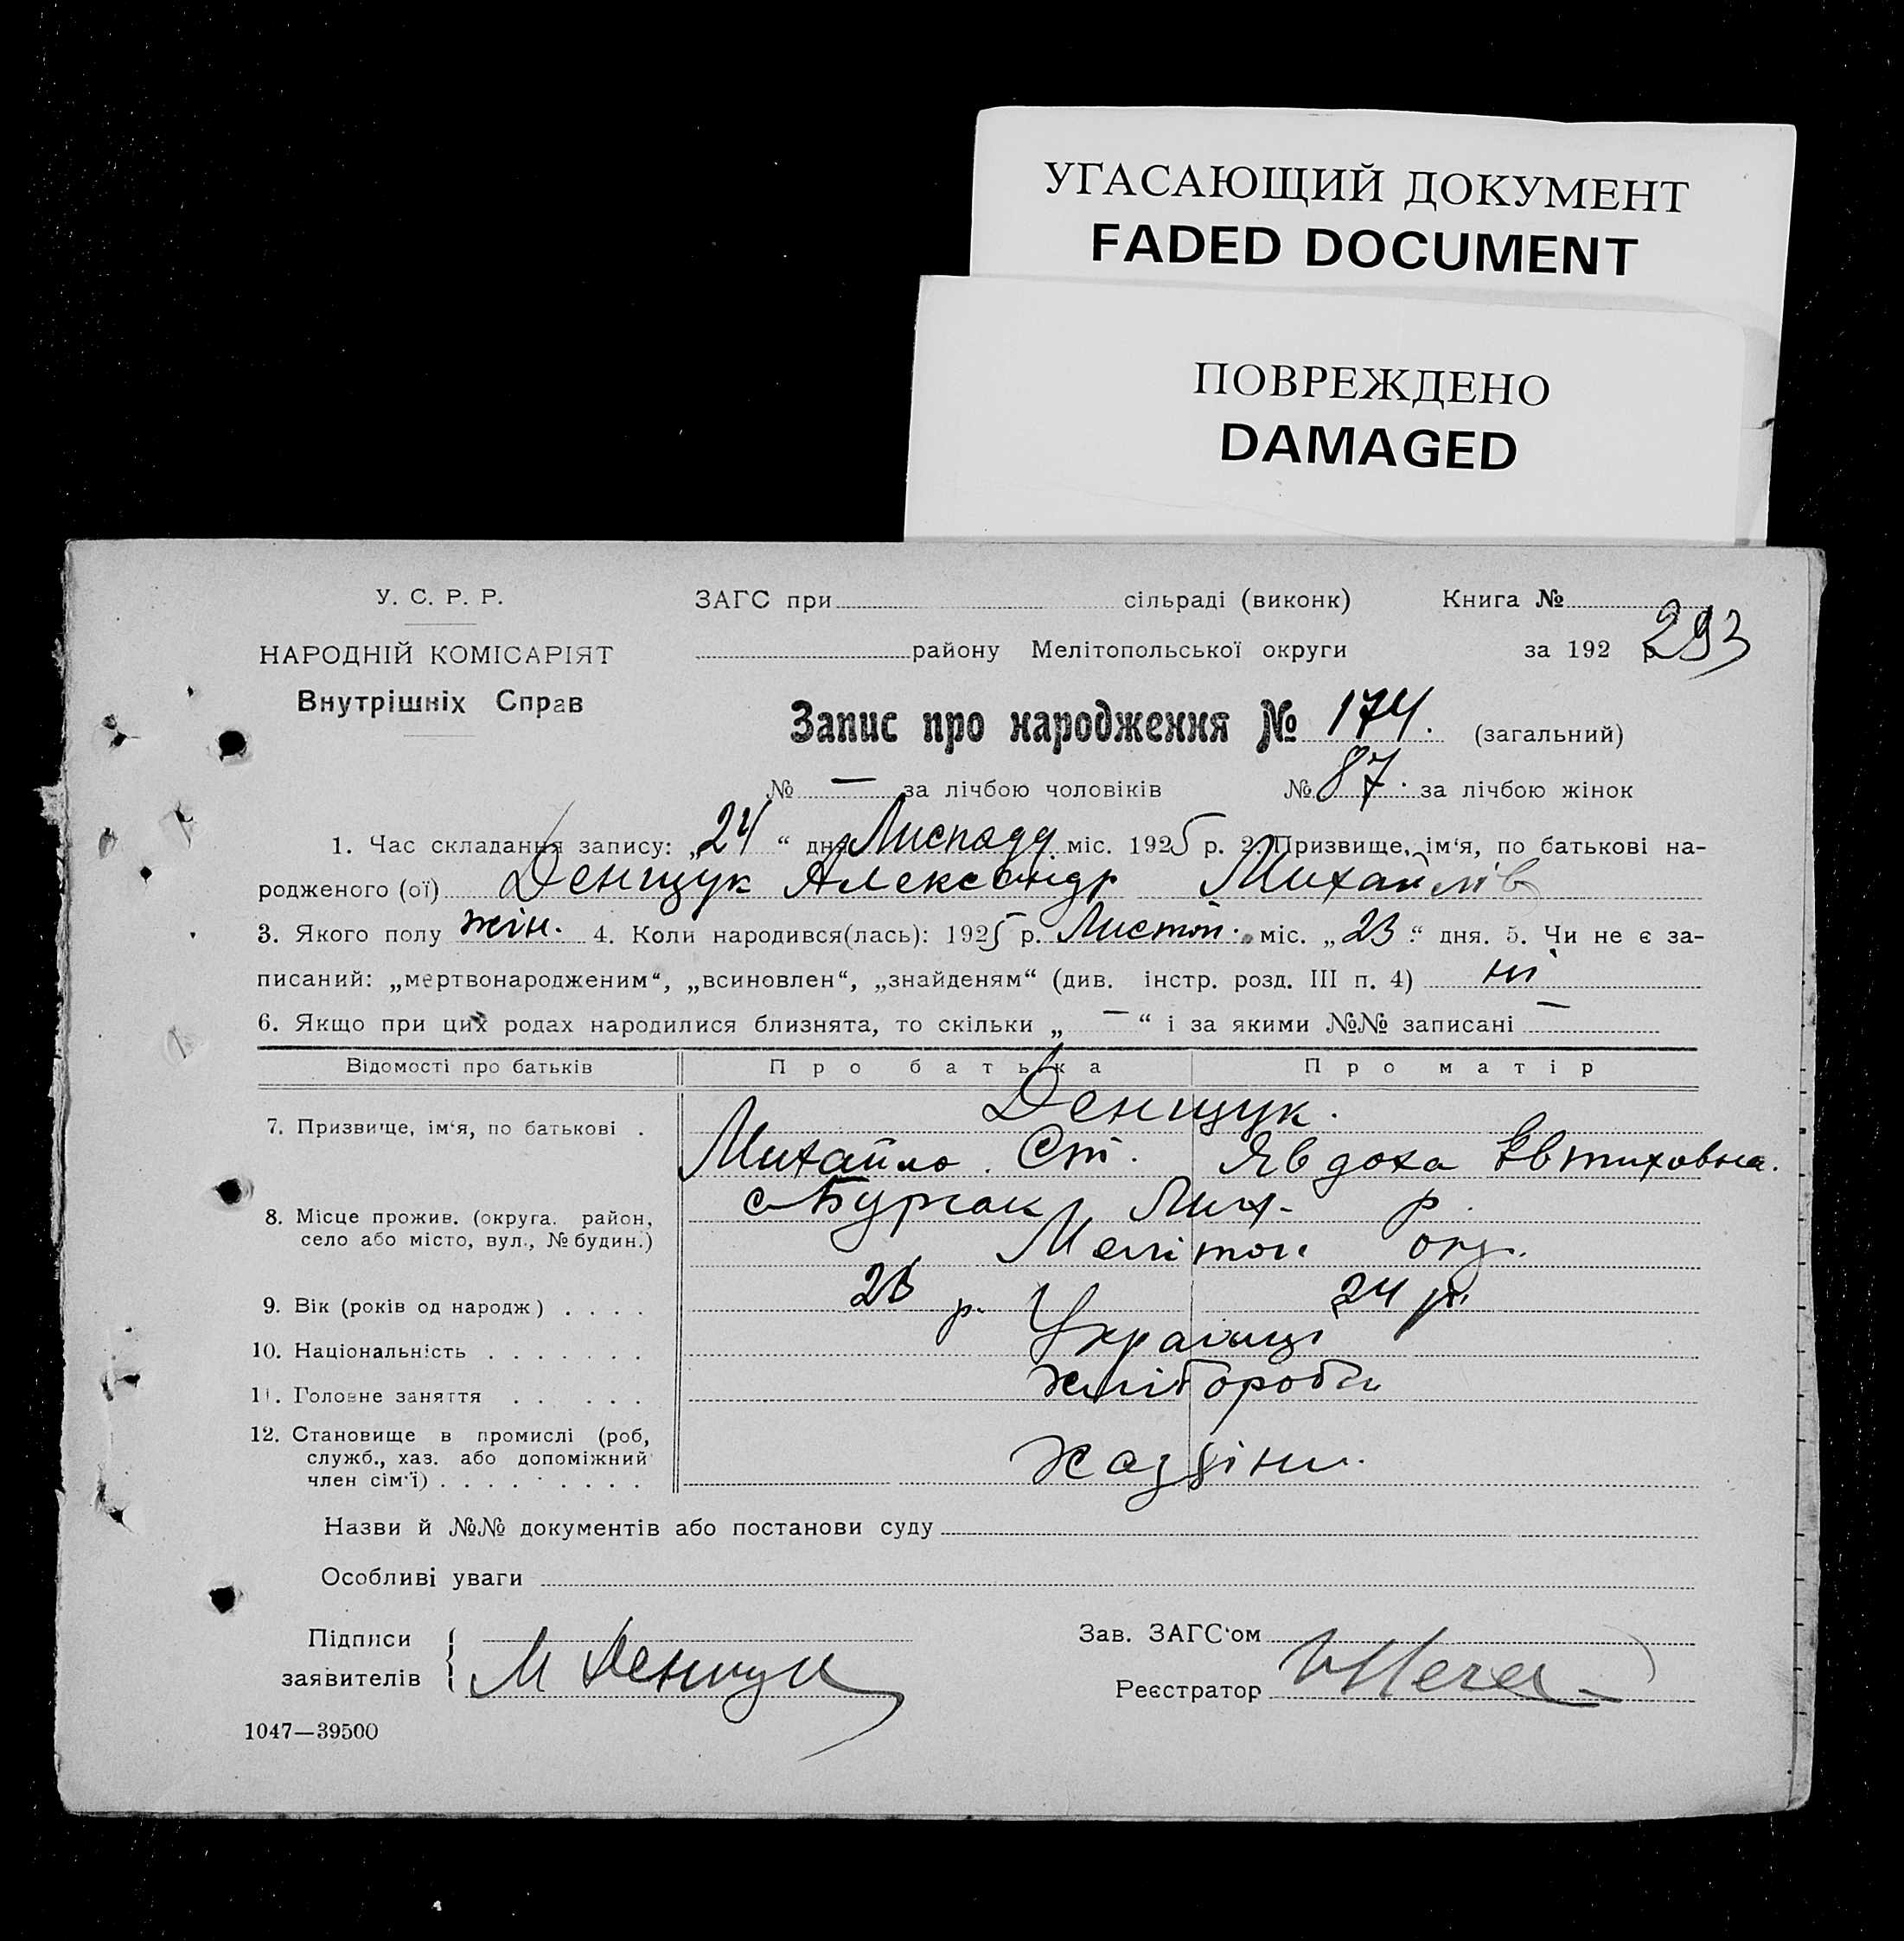 УГАСАЮЩИЙ ДОКУМЕНТ
FADED DOCUMENT
ПОВРЕЖДЕНО
DAMAGED
У. С. Р. Р.
НАРОДНІЙ КОМІСАРІЯТ
Внутрішніх Справ
ЗАГС при сільраді (виконк) Книга №
району Мелітопольської округи за 192 р
293
Запис про народження № 174. (загальний)
№ — за лічбою чоловіків № 87. за лічбою жінок
1. Час складання запису: „24“ дня Листопаду міс. 1925 р. 2. Призвище, ім'я, по батькові на-
родженого (ої) Денщук Александр Михайлів
3. Якого полу жін. 4. Коли народився(лась): 1925 р. Листоп. міс. „23“ дня. 5. Чи не є за-
писаний: „мертвонародженим“, „всиновлен“, „знайденям“ (див. інстр. розд. III п. 4) ні
6. Якщо при цих родах народилися близнята, то скільки „ — “ і за якими №№ записані —
Відомості про батьків Про батька Про матір
7. Призвище, ім'я, по батькові . Денщук.
Михайло. Ст. Явдоха Евтиховна.
8. Місце прожив. (округа, район,
село або місто, вул., № будин.)
Мелітоп окр.
9. Вік (років од народж) . . . . 23 р. 24 р.
10. Національність . . . . . . . Українці
11. Головне заняття . . . . . Хлібороби
12. Становище в промислі (роб,
служб., хаз. або допоміжний
член сім'ї) . . . . . . . . Хазяіни.
Назви й №№ документів або постанови суду
Особливі уваги
Підписи
заявителів М Денщук
Зав. ЗАГС'ом
Реєстратор
1047—39500